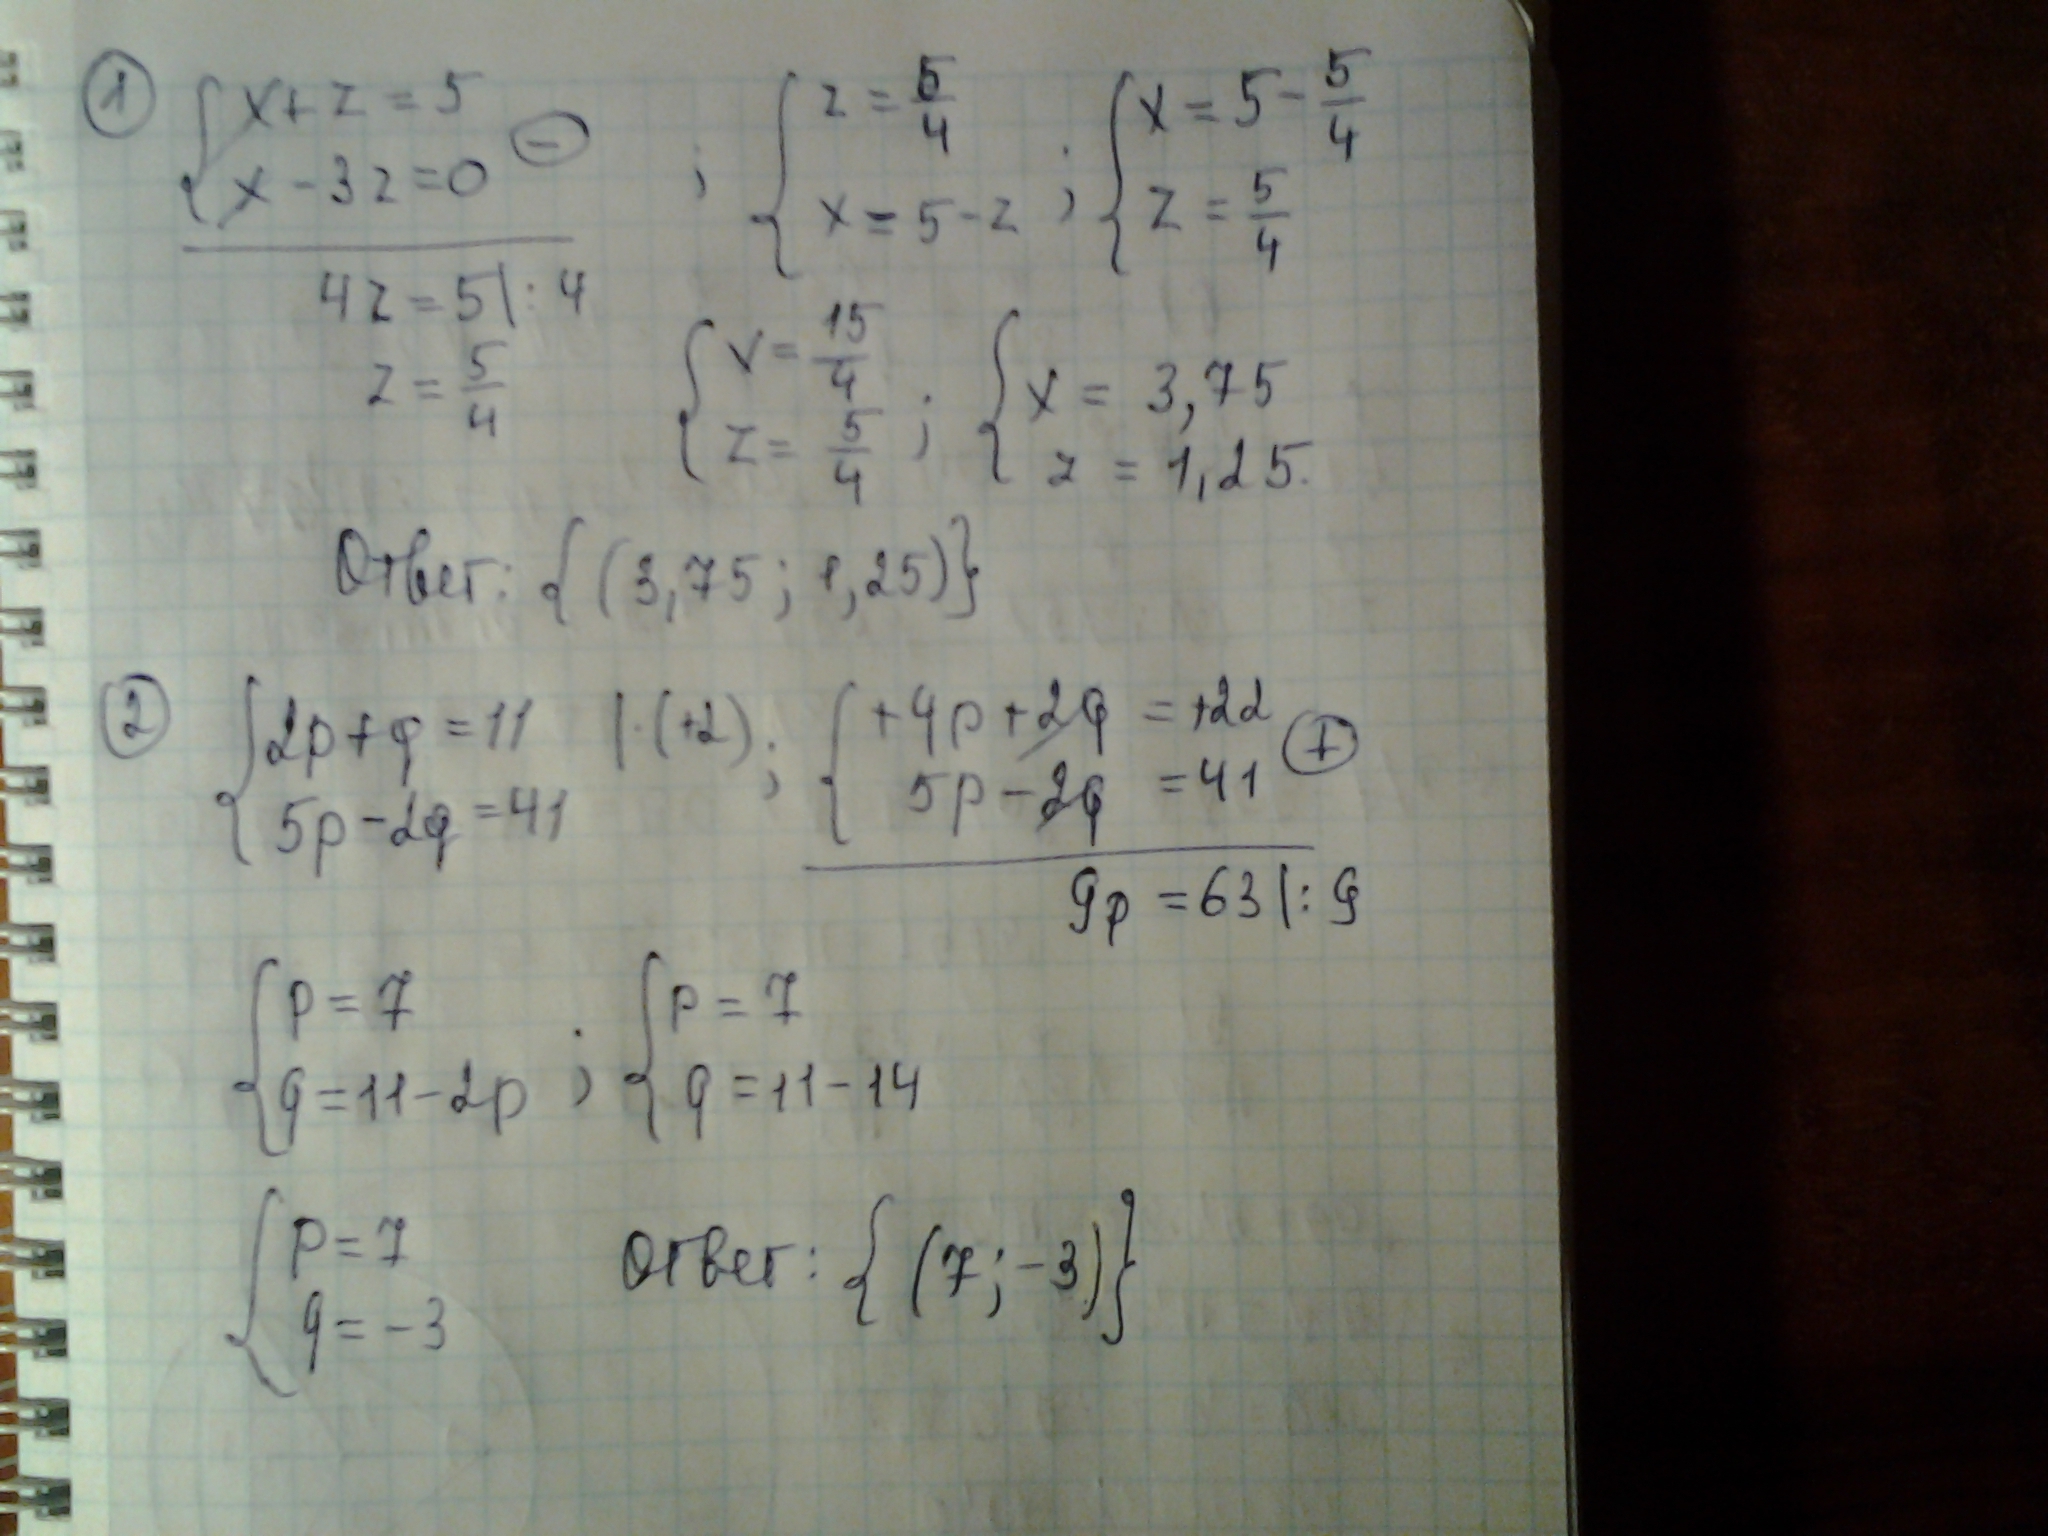 ① { x + z = 5
x - 3z = 0 ⊖
4z = 5 |: 4
z = 5/4
; { z = 5/4
x = 5 - z
; { x = 5 - 5/4
z = 5/4
{ x = 15/4
z = 5/4
; { x = 3,75
z = 1,25.
Ответ: {(3,75; 1,25)}
② { 2p + q = 11 | · (+2)
5p - 2q = 41
; { +4p + 2q = +22
5p - 2q = 41 ⊕
9p = 63 |: 9
{ p = 7
q = 11 - 2p
; { p = 7
q = 11 - 14
{ p = 7
q = -3
Ответ: {(7; -3)}